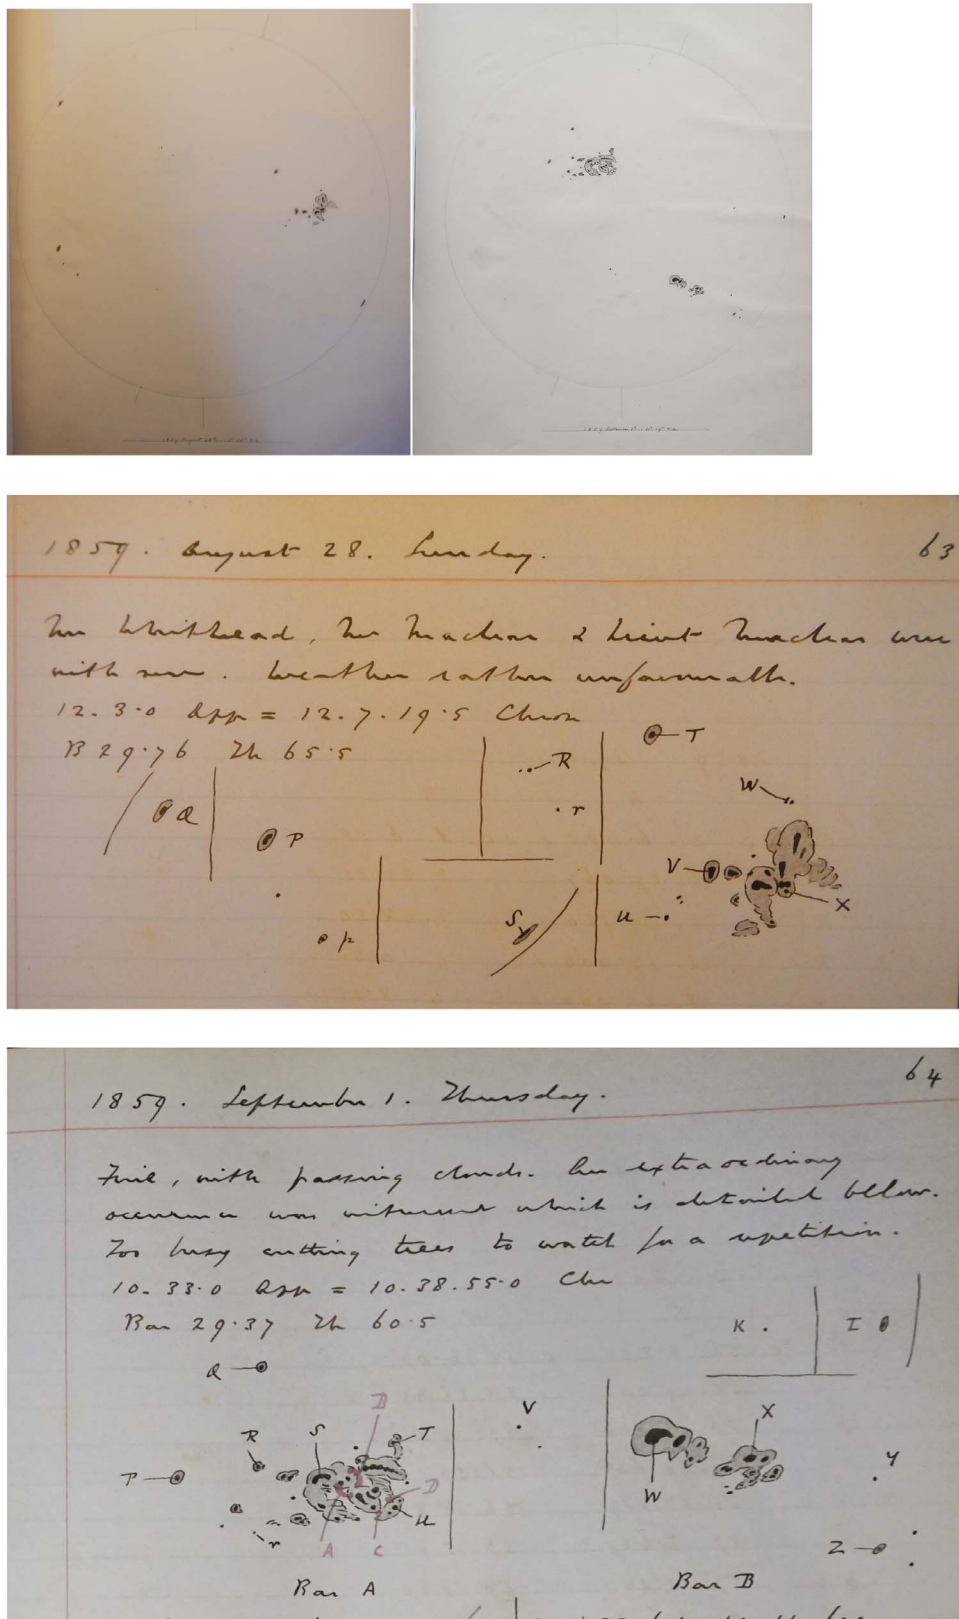 1859. August 28. Sunday. 63
Mr Whitehead, Mr Maclear & Lieut Maclear were
with me. Weather rather unfavourable.
12. 3. 0 App = 12. 7. 19. 5 Chron
B 29. 76 Th 65. 5
R
T
W
Q
r
P
V
X
S
u
p
1859. September 1. Thursday. 64
Fine, with passing clouds. An extraordinary
occurrence was witnessed which is detailed below.
Too busy cutting trees to watch for a repetition.
10. 33. 0 App = 10. 38. 55. 0 Chr
Bar 29. 37 Th 60. 5
K
I
Q
B
V
X
R
S
T
P
Y
D
W
u
r
A
C
Z
Bar A Bar B